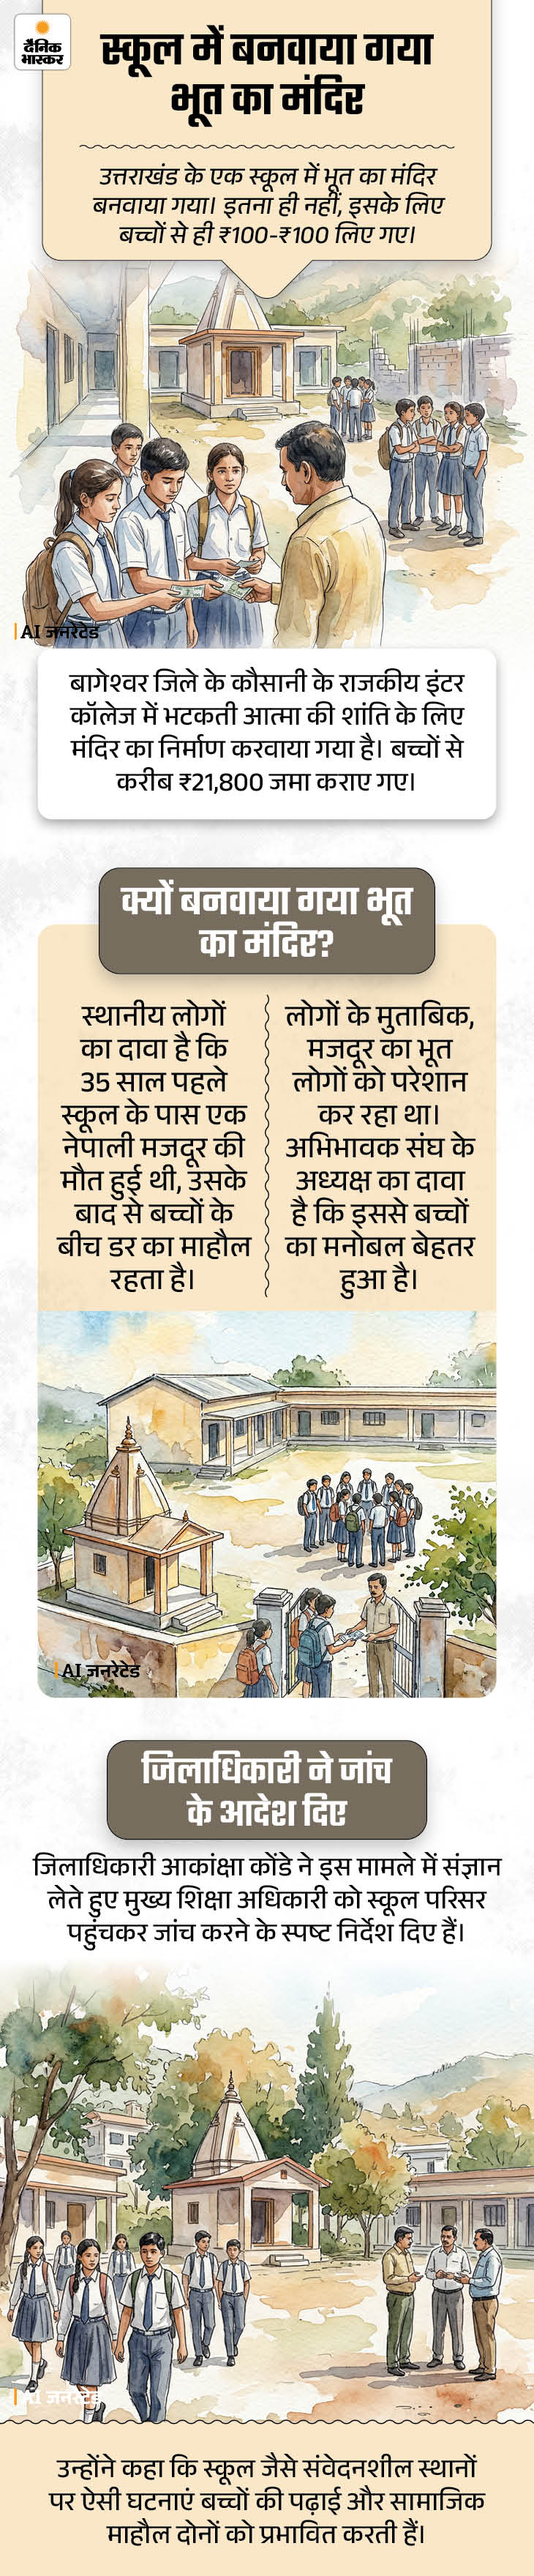 दैनिक
भास्कर
स्कूल में बनवाया गया
भूत का मंदिर
उत्तराखंड के एक स्कूल में भूत का मंदिर
बनवाया गया। इतना ही नहीं, इसके लिए
बच्चों से ही ₹100-₹100 लिए गए।
AI जनरेटेड
बागेश्वर जिले के कौसानी के राजकीय इंटर
कॉलेज में भटकती आत्मा की शांति के लिए
मंदिर का निर्माण करवाया गया है। बच्चों से
करीब ₹21,800 जमा कराए गए।
क्यों बनवाया गया भूत
का मंदिर?
स्थानीय लोगों
का दावा है कि
35 साल पहले
स्कूल के पास एक
नेपाली मजदूर की
मौत हुई थी, उसके
बाद से बच्चों के
बीच डर का माहौल
रहता है।
लोगों के मुताबिक,
मजदूर का भूत
लोगों को परेशान
कर रहा था।
अभिभावक संघ के
अध्यक्ष का दावा
है कि इससे बच्चों
का मनोबल बेहतर
हुआ है।
AI जनरेटेड
जिलाधिकारी ने जांच
के आदेश दिए
जिलाधिकारी आकांक्षा कोंडे ने इस मामले में संज्ञान
लेते हुए मुख्य शिक्षा अधिकारी को स्कूल परिसर
पहुंचकर जांच करने के स्पष्ट निर्देश दिए हैं।
AI जनरेटेड
उन्होंने कहा कि स्कूल जैसे संवेदनशील स्थानों
पर ऐसी घटनाएं बच्चों की पढ़ाई और सामाजिक
माहौल दोनों को प्रभावित करती हैं।